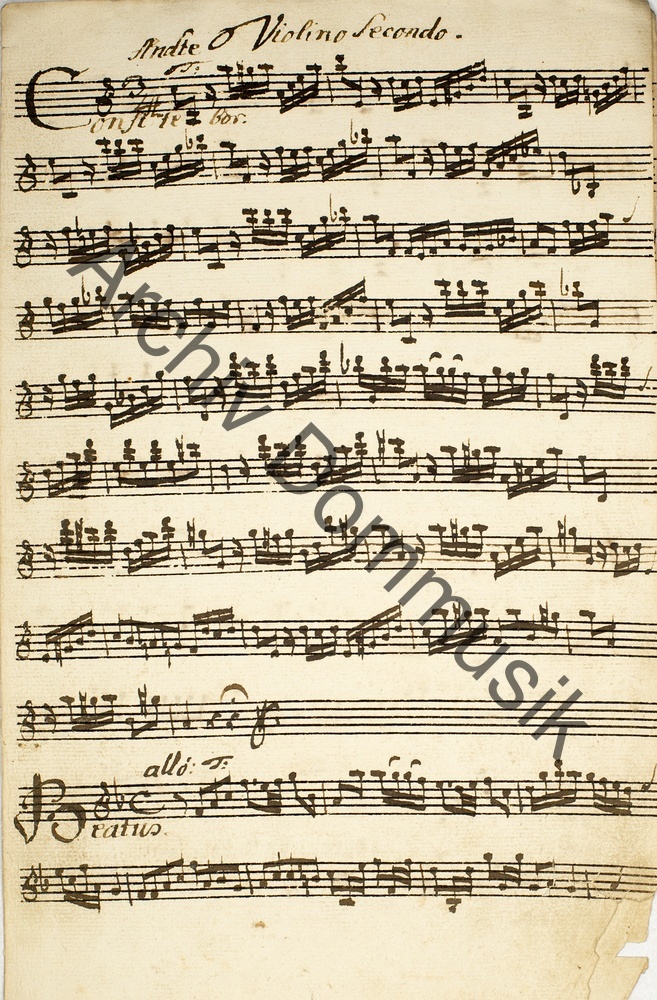 Violino Secondo.
Andte
Confitebor.
allo:
Beatus.
Archiv Dommusik